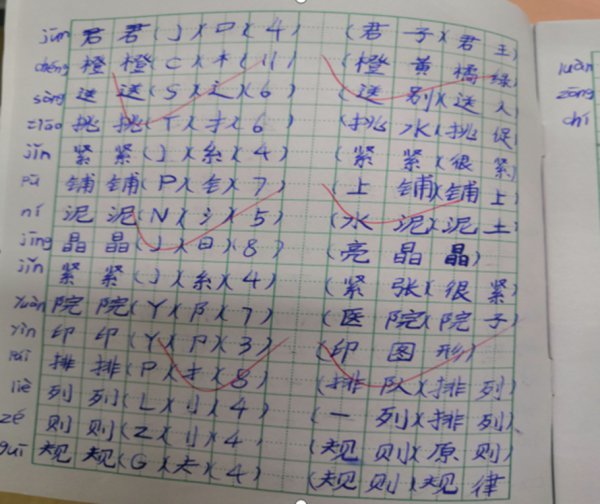 jūn 君 君(J)(口)(4) (君子)(君王)
chéng 橙 橙(C)(木)(11) (橙黄橘绿)
sòng 送 送(S)(辶)(6) (送别)(送人)
tiāo 挑 挑(T)(扌)(6) (挑水)(挑促)
jǐn 紧 紧(J)(糸)(4) (紧紧)(很紧)
pù 铺 铺(P)(钅)(7) (上铺)(铺上)
ní 泥 泥(N)(氵)(5) (水泥)(泥土)
jīng 晶 晶(J)(日)(8) (亮晶晶)
jǐn 紧 紧(J)(糸)(4) (紧张)(很紧)
yuàn 院 院(Y)(阝)(7) (医院)(院子)
yìn 印 印(Y)(卩)(3) (印图形)
pái 排 排(P)(扌)(8) (排队)(排列)
liè 列 列(L)(刂)(4) (一列)(排列)
zé 则 则(Z)(刂)(4 (规则)(原则)
guī 规 规(G)(夫)(4) (规则)(规律
luàn
zāng
chí